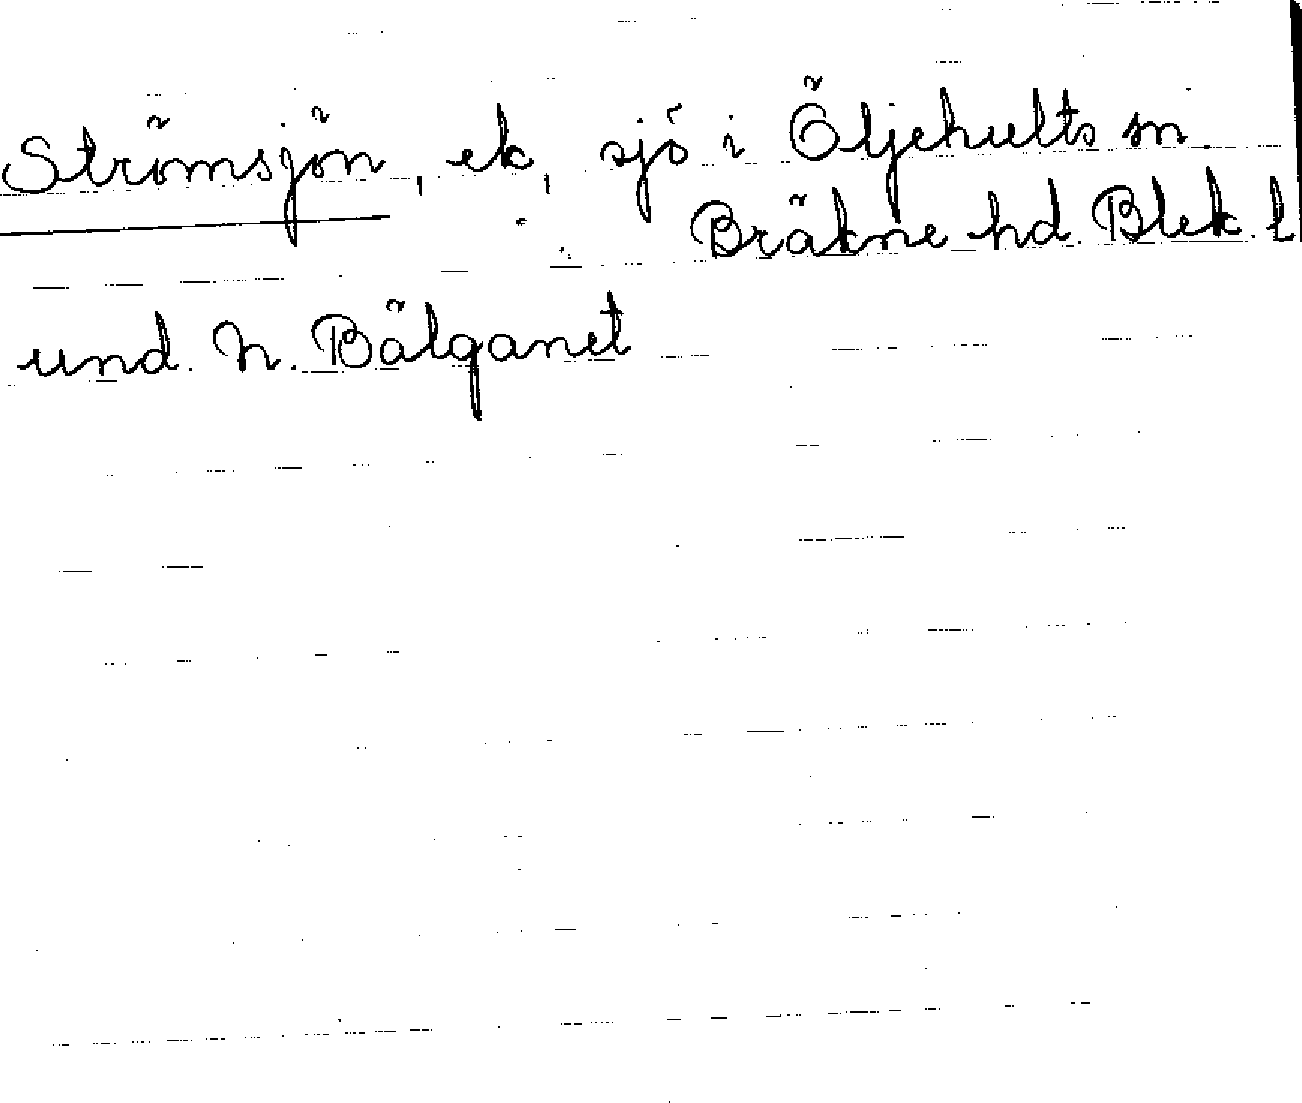 Strömsjön, ek, sjö i Öljehults sn.
Bräkne hd. Blek. l
und. N. Bälganet